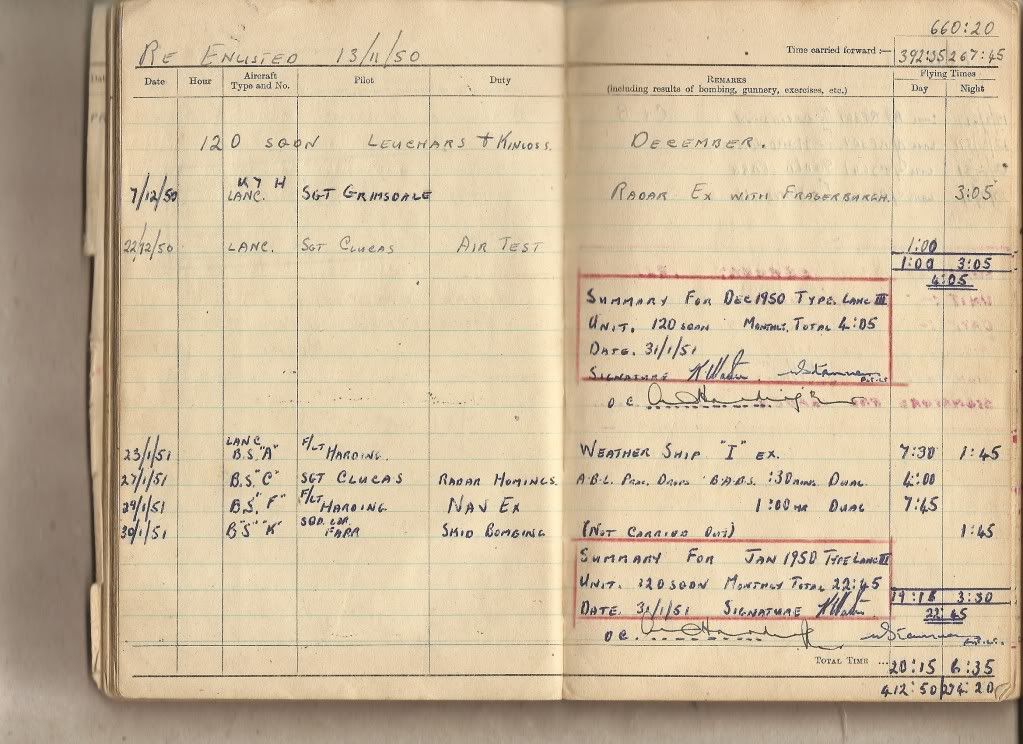 660:20
RE ENLISTED 13/11/50
Time carried forward :— 392:35 267:45
Date Hour Aircraft Type and No. Pilot Duty REMARKS (including results of bombing, gunnery, exercises, etc.) Flying Times Day Night
120 SQDN LEUCHARS + KINLOSS. DECEMBER.
7/12/50 H LANC. SGT GRIMSDALE RADAR EX WITH FRASERBURGH 3:05
22/12/50 LANC. SGT CLUCAS AIR TEST 1:00
1:00 3:05
4:05
SUMMARY FOR DEC 1950 TYPE. LANC III
UNIT. 120 SQDN MONTHLY TOTAL 4:05
DATE. 31/1/51
SIGNATURE
O C
23/1/51 LANC B.S."A" F/LT HARDING. WEATHER SHIP "I" EX. 7:30 1:45
27/1/51 B.S."C" SGT CLUCAS RADAR HOMINGS A.B.L. PRAC. DROPS BABS. :30 MINS DUAL 4:00
29/1/51 B.S."F" F/LT HARDING NAV EX 1:00 HR DUAL 7:45
30/1/51 B"S" "K" SQD. LDR. FARR SKID BOMBING (NOT CARRIED OUT) 1:45
SUMMARY FOR JAN 1950 TYPE LANC III
UNIT. 120 SQDN MONTHLY TOTAL 22:45
19:15 3:30
DATE. 31/1/51 SIGNATURE
22:45
O C
TOTAL TIME ... 20:15 6:35
412:50 274:20